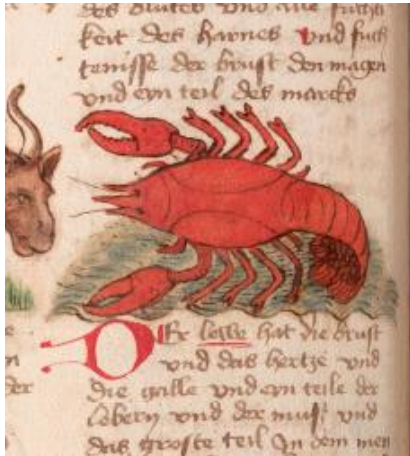 des blutes vnd die fuchti
keit des harnes vnd fuch
tenisse der brust den magen
vnd eyn teil des marcks
DEr lewe hat die brust
vnd das hertze vnd
die galle vnd eyn teile der
lebern vnd der must vnd
das groste teil In dem men
der